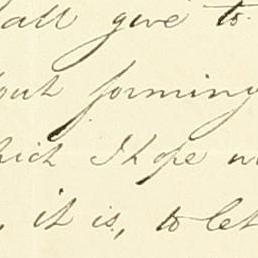 all give to
out forming
hich I hope
, it is, to let